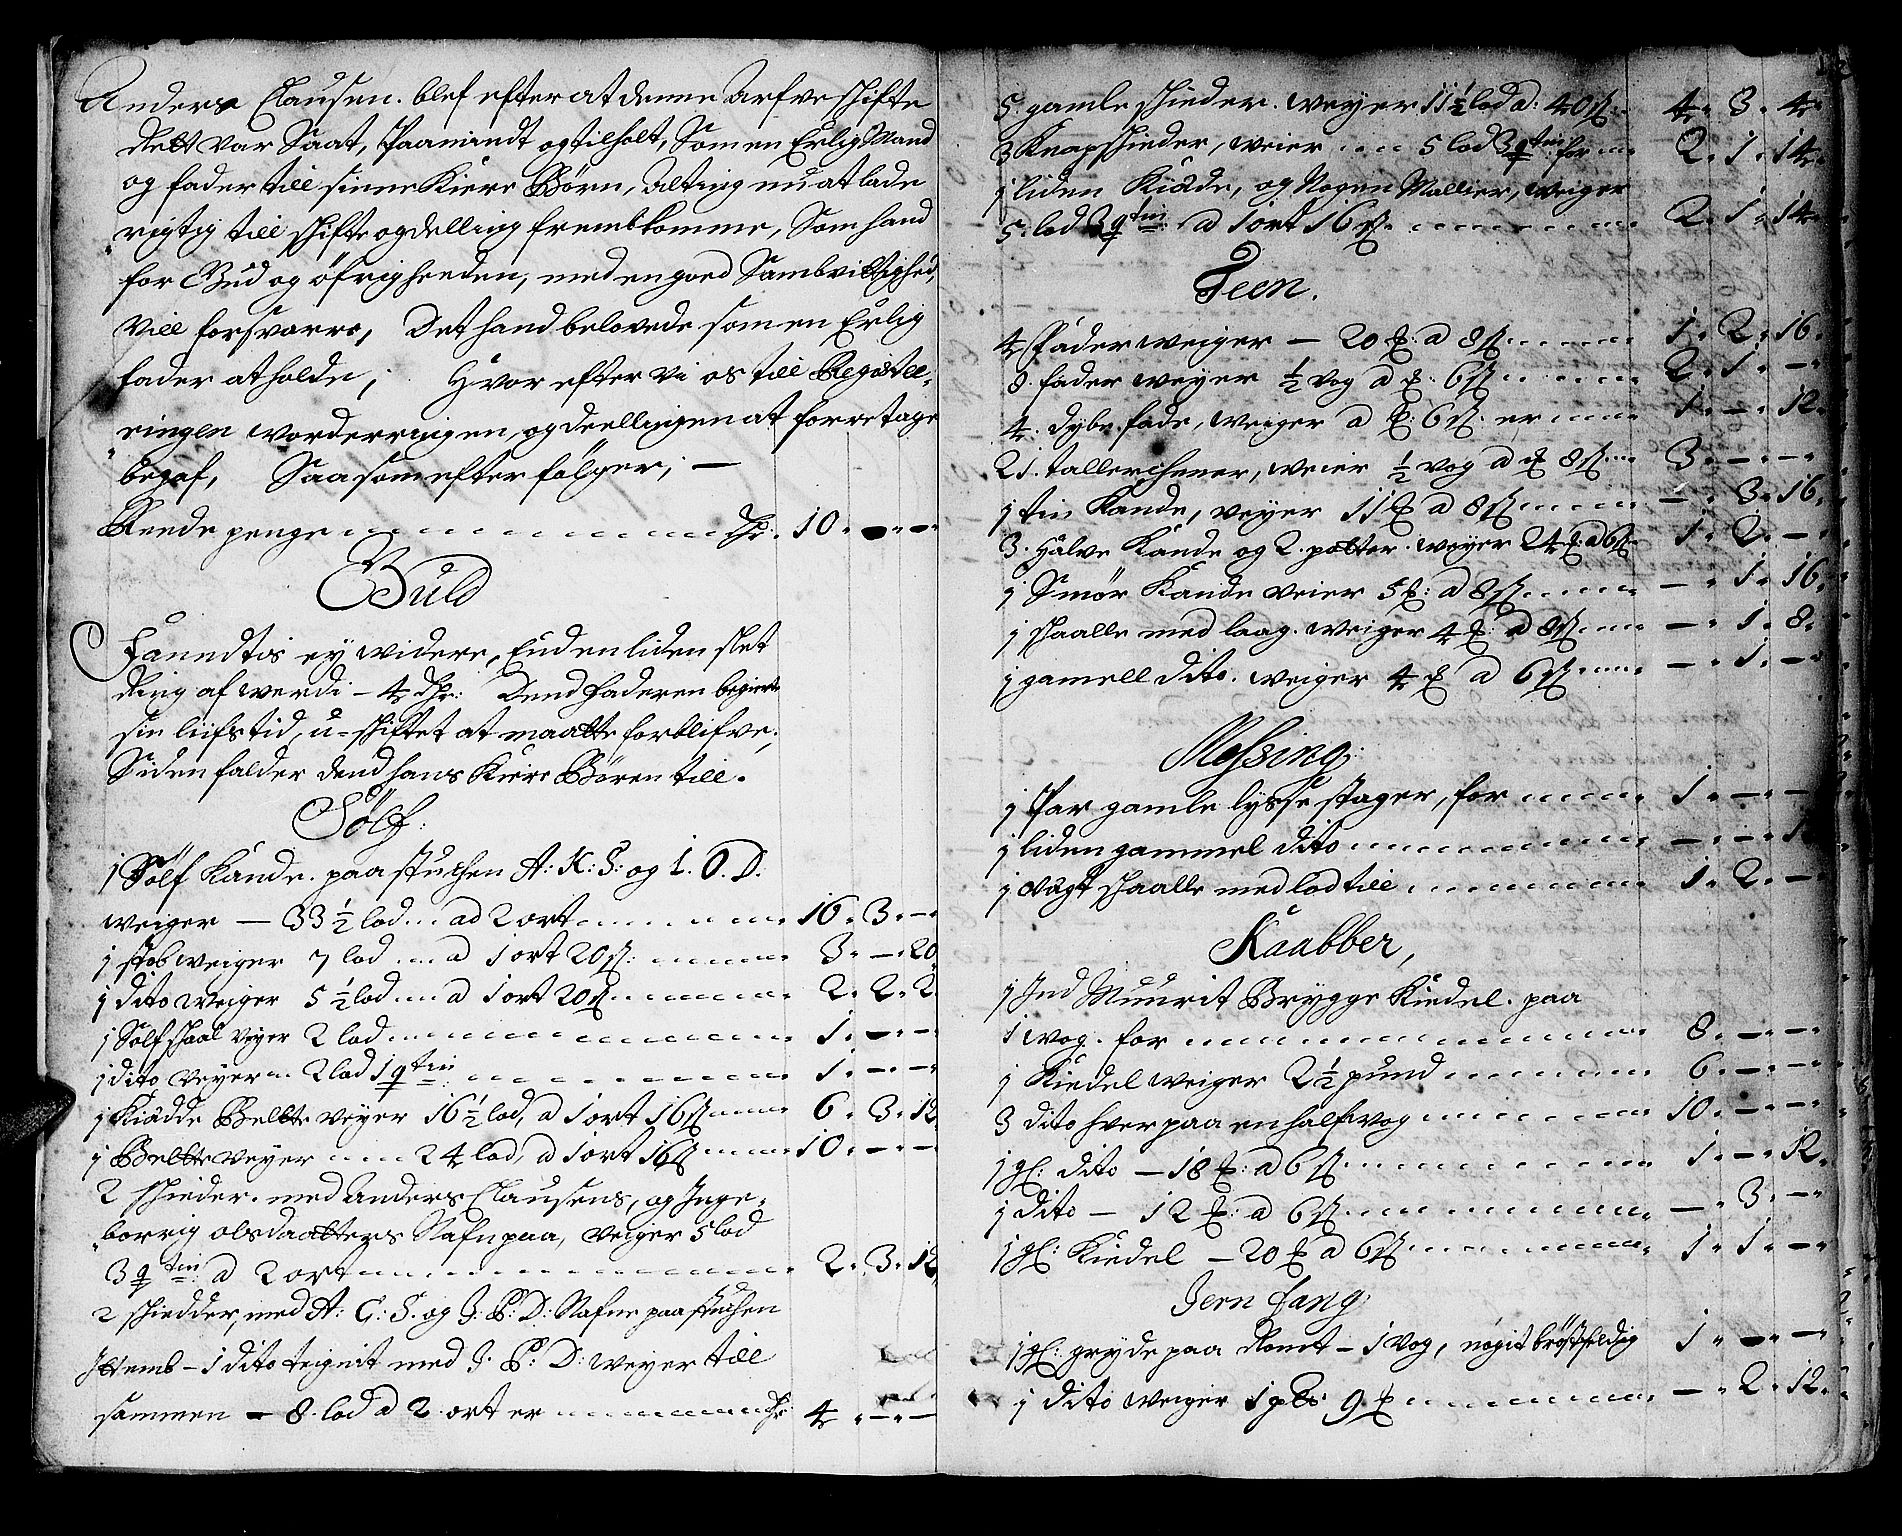 Anders Clausen. blef efter at denne Arfveskifte
Rett var Saat, Paamindt og tilholt, Som en Erlig Mand
og fader till sinne Kiere Børn, Alting nu at lade
rigtig till skifte og delling frembkomme, Som hand
for Gud og öfrigheeden, med en goed Sambvittighed,
vill forsvarre, Det hand belovede som en Erlig
fader at holde; Hvor efter vi os till Registe-
ringen worderringen, og deellingen at forretage
begaf, Saasom efter følger; —
Reede penge Dr: 10 " — " — "
Guld
Fanndtis ey widere, End en liden slet
Ring af werdi – 4 dr: Dend faderen begierte
sin liifstid, u-skiftet at maatte forblifve,
Siden falder dend hans Kiere Børen till.
Sölf:
1 Sölf Kande. paa stuchen A: K: S: og I. O. D.
weiger — 33 ½ lod ad 2 ort 16 " 3 " —
1 stob weiger 7 lod a 1 ort 20 ß: 3 " — " 20
1 dito weiger 5 ½ lod a 1 ort 20 ß 2 " 2 " 2
1 Sölf skaal veyer 2 lod 1 " — " —
1 dito veyer 2 lod 1 qtin 1 " — " —
1 Kiæde Belte veyer 16 ½ lod, a 1 ort 16 ß 6 " 3 " 12
1 Belte veyer 24 lod, a 1 ort 16 ß 10 " — " —
2 skieder. med Anders Clausens, og Inge-
borrig olsdaatters Nafn paa, veiger 5 lod
3 qtin: a 2 ort 2 " 3 " 12
2 skiedder, med A: C: S. og I: P: D: Nafne paa stuchen
Ittemb – 1 dito teignit med I: P: D: weyer till
sammen – 8. lod a 2. ort er dr 4 " — " —
5 gamle skieder. weyer 11 ½ lod a: 40 ß: 4 " 3 " 4
3 Knapskieder, weier 5 lod 3 qtin for 2 " 1 " 14
1 liden Kiæde, og Nogen Mallier, weiger
5: lod 3 qtin a 1 ort 16 ß 2 " 1 " 14
Teen.
4 Fader weiger — 20 ℔. a 8 ß 1 " 2 " 16
8. fader weyer ½ vog a ℔: 6 ß 2 " 1 " —
4. dybe fade, weiger a ℔: 6 ß. er 1 " — " 12
21. tallerchener, weier ½ vog a ℔ 8 ß 3 " — " —
1 tin Kande, veyer 11 ℔ a 8 ß — " 3 " 16
3. Halve Kande og 2. potter. weyer 24 ℔: a 6 ß 1 " 2 " —
1 Smör Kande veier 5 ℔: a 8 ß — " 1 " 16
1 skaalle med laag. weiger 4 ℔: a 8 ß — " 1 " 8
1 gamell dito. weiger 4 ℔ a 6 ß — " 1 " —
Messing:
1 Par gamle lysse stager, for 1 " — " —
1 liden gammel dito — " — "
1 vægt skaalle med lod till 1 " 2 " —
Kaabber,
1 Ind Muurit Brygge Kiedel. paa
1 vog. for 8 " — " —
1 Kiedel weiger 2 ½ pund 6 " — " —
3 dito hver paa en half vog 10 " — " —
1 gl: dito — 18 ℔: a 6 ß 1 " — " 12
1 dito — 12 ℔: a 6 ß — " 3 " —
1 gl: Kiedel — 20 ℔ a 6 ß 1 " 1 " —
Jern fang:
1 gl: gryde paa Romt – 1 vog, nögit bröstfeldig 1 " — " —
1 dito weiger 1 9 ℔ — " 2 " 12